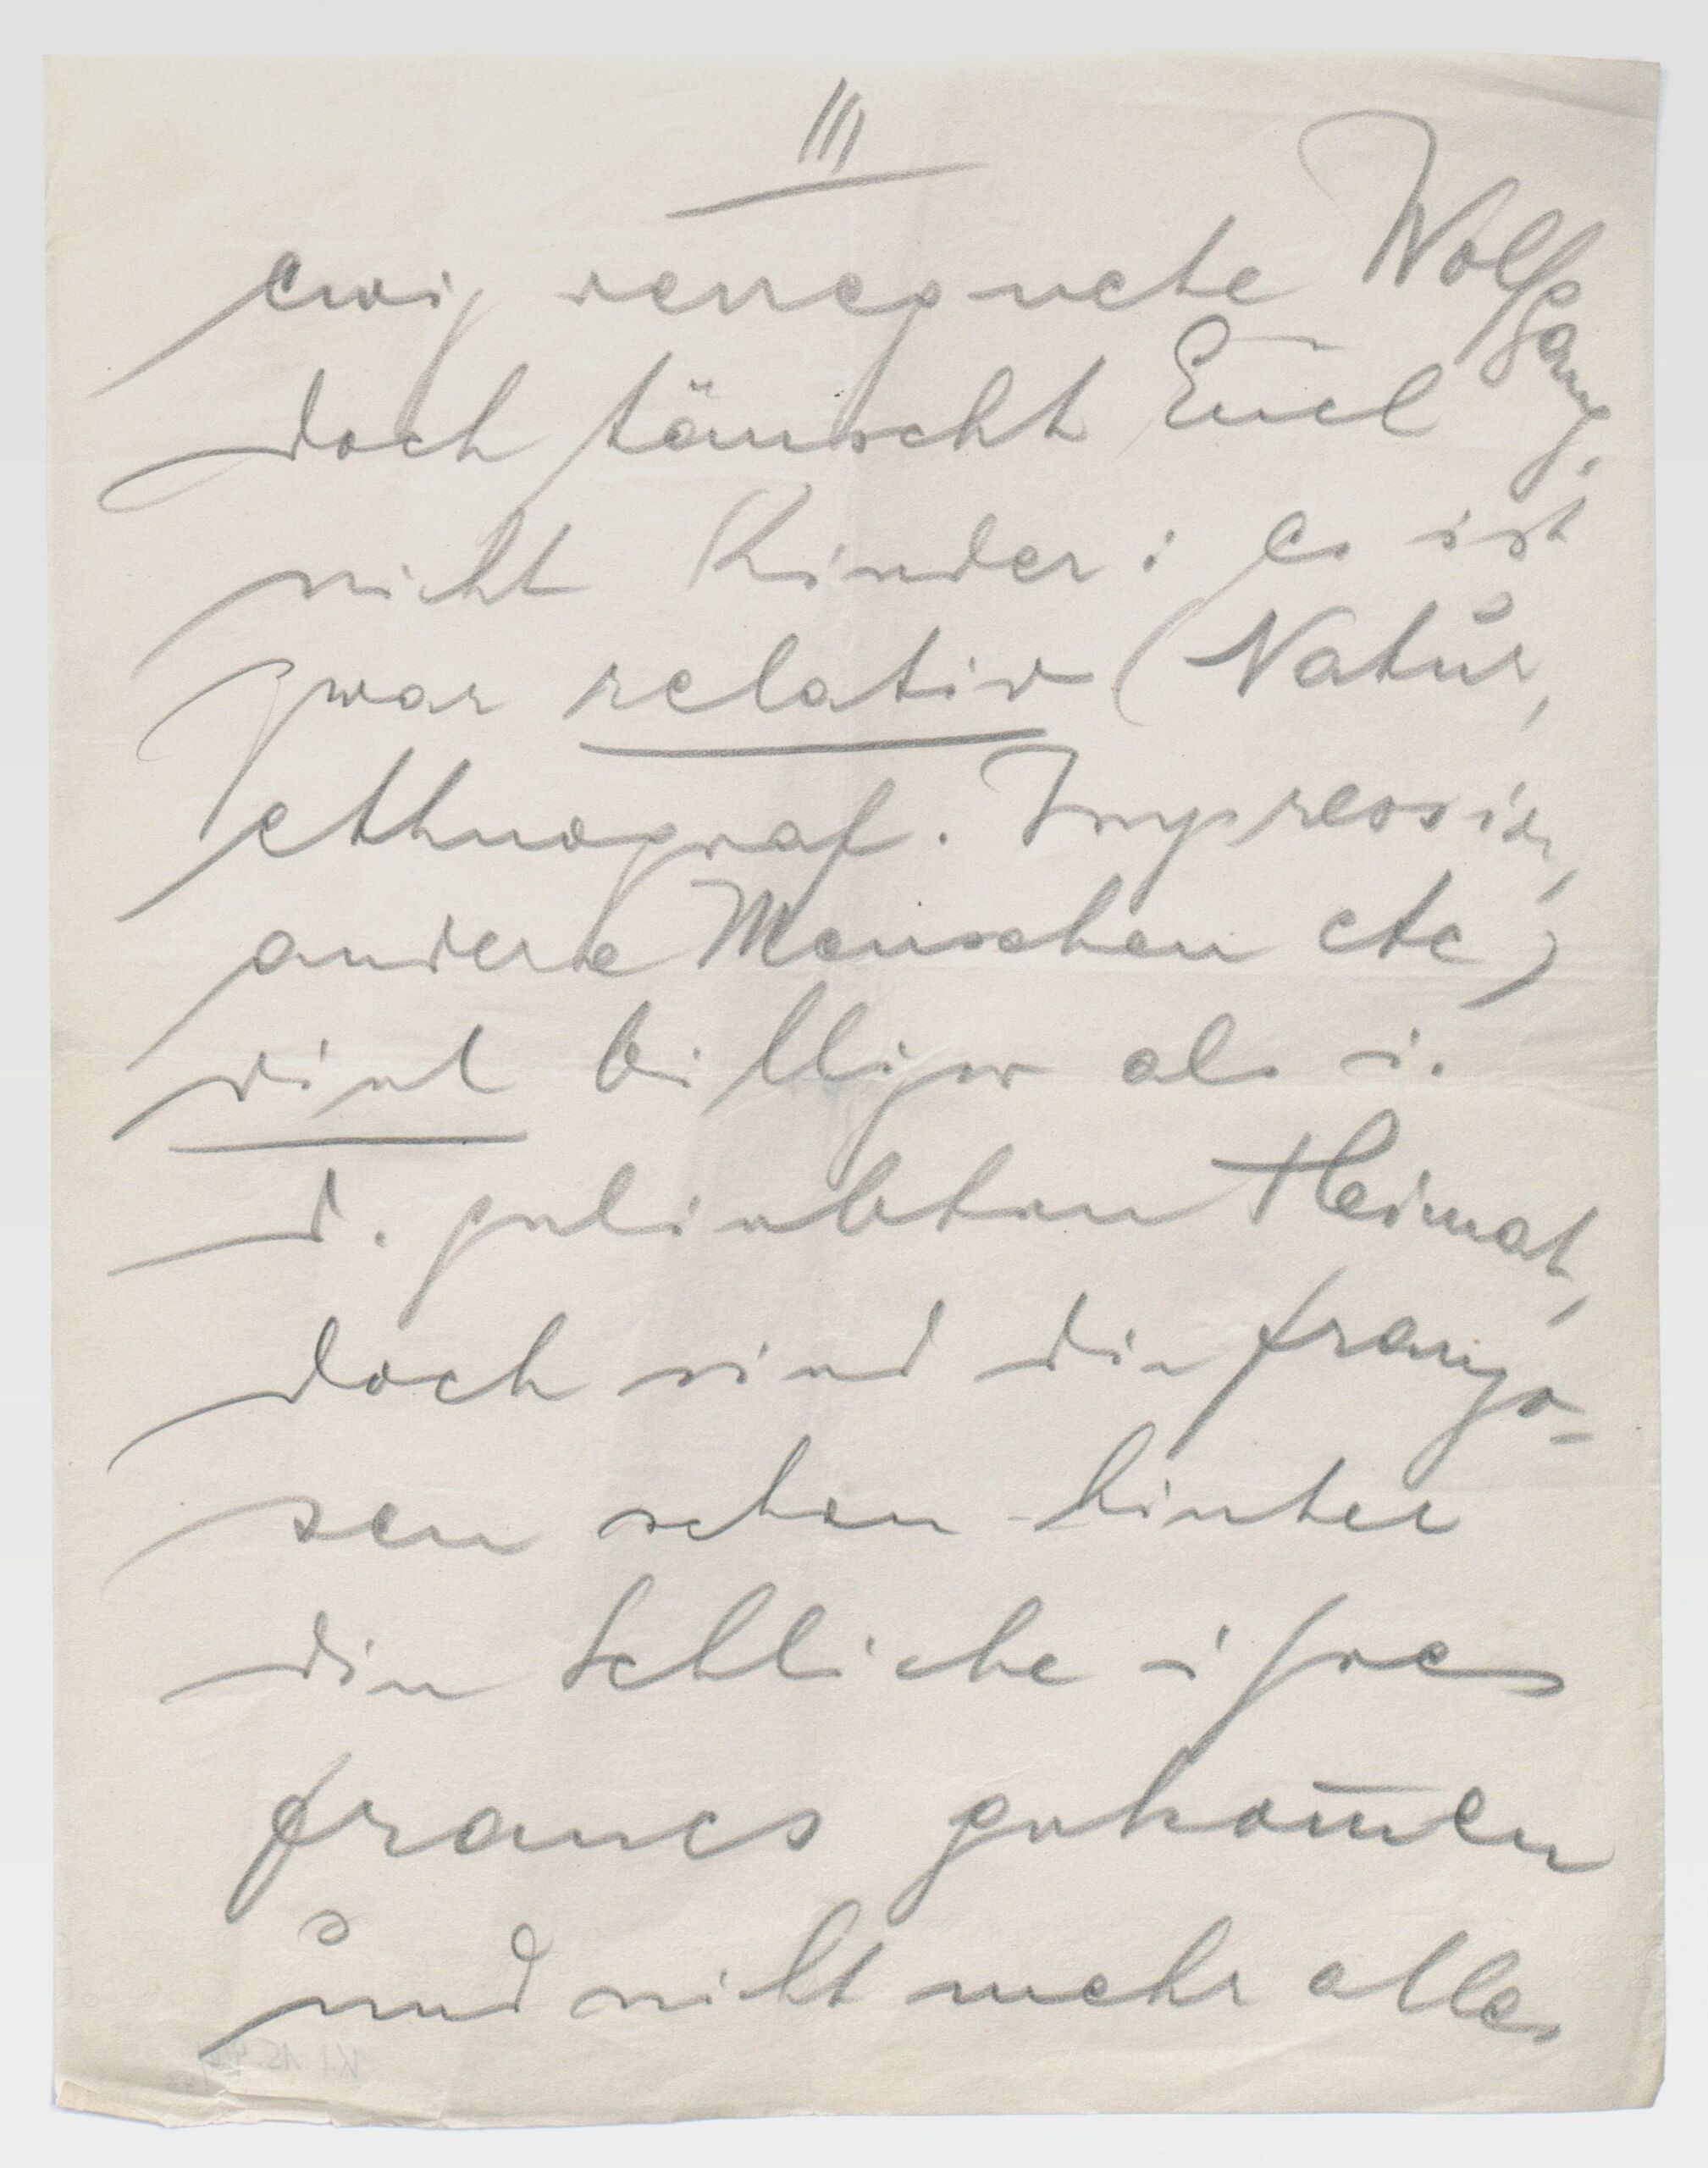 III
ewig verregnete Wolfgang,
doch täuscht Euch
nicht Kinder: es ist
zwar relativ (Natur,
ethnograf. Impression,
andere Menschen etc)
viel billiger als i.
d. geliebten Heimat,
doch sind die Franzo-
sen schon hinter
die Schliche ihres
francs gekom̅en
und nicht mehr alles